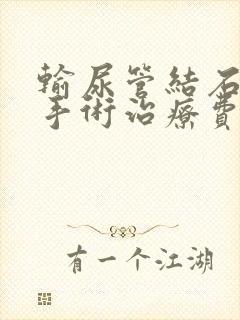 輸尿管結石
手術治療費
有一个江湖